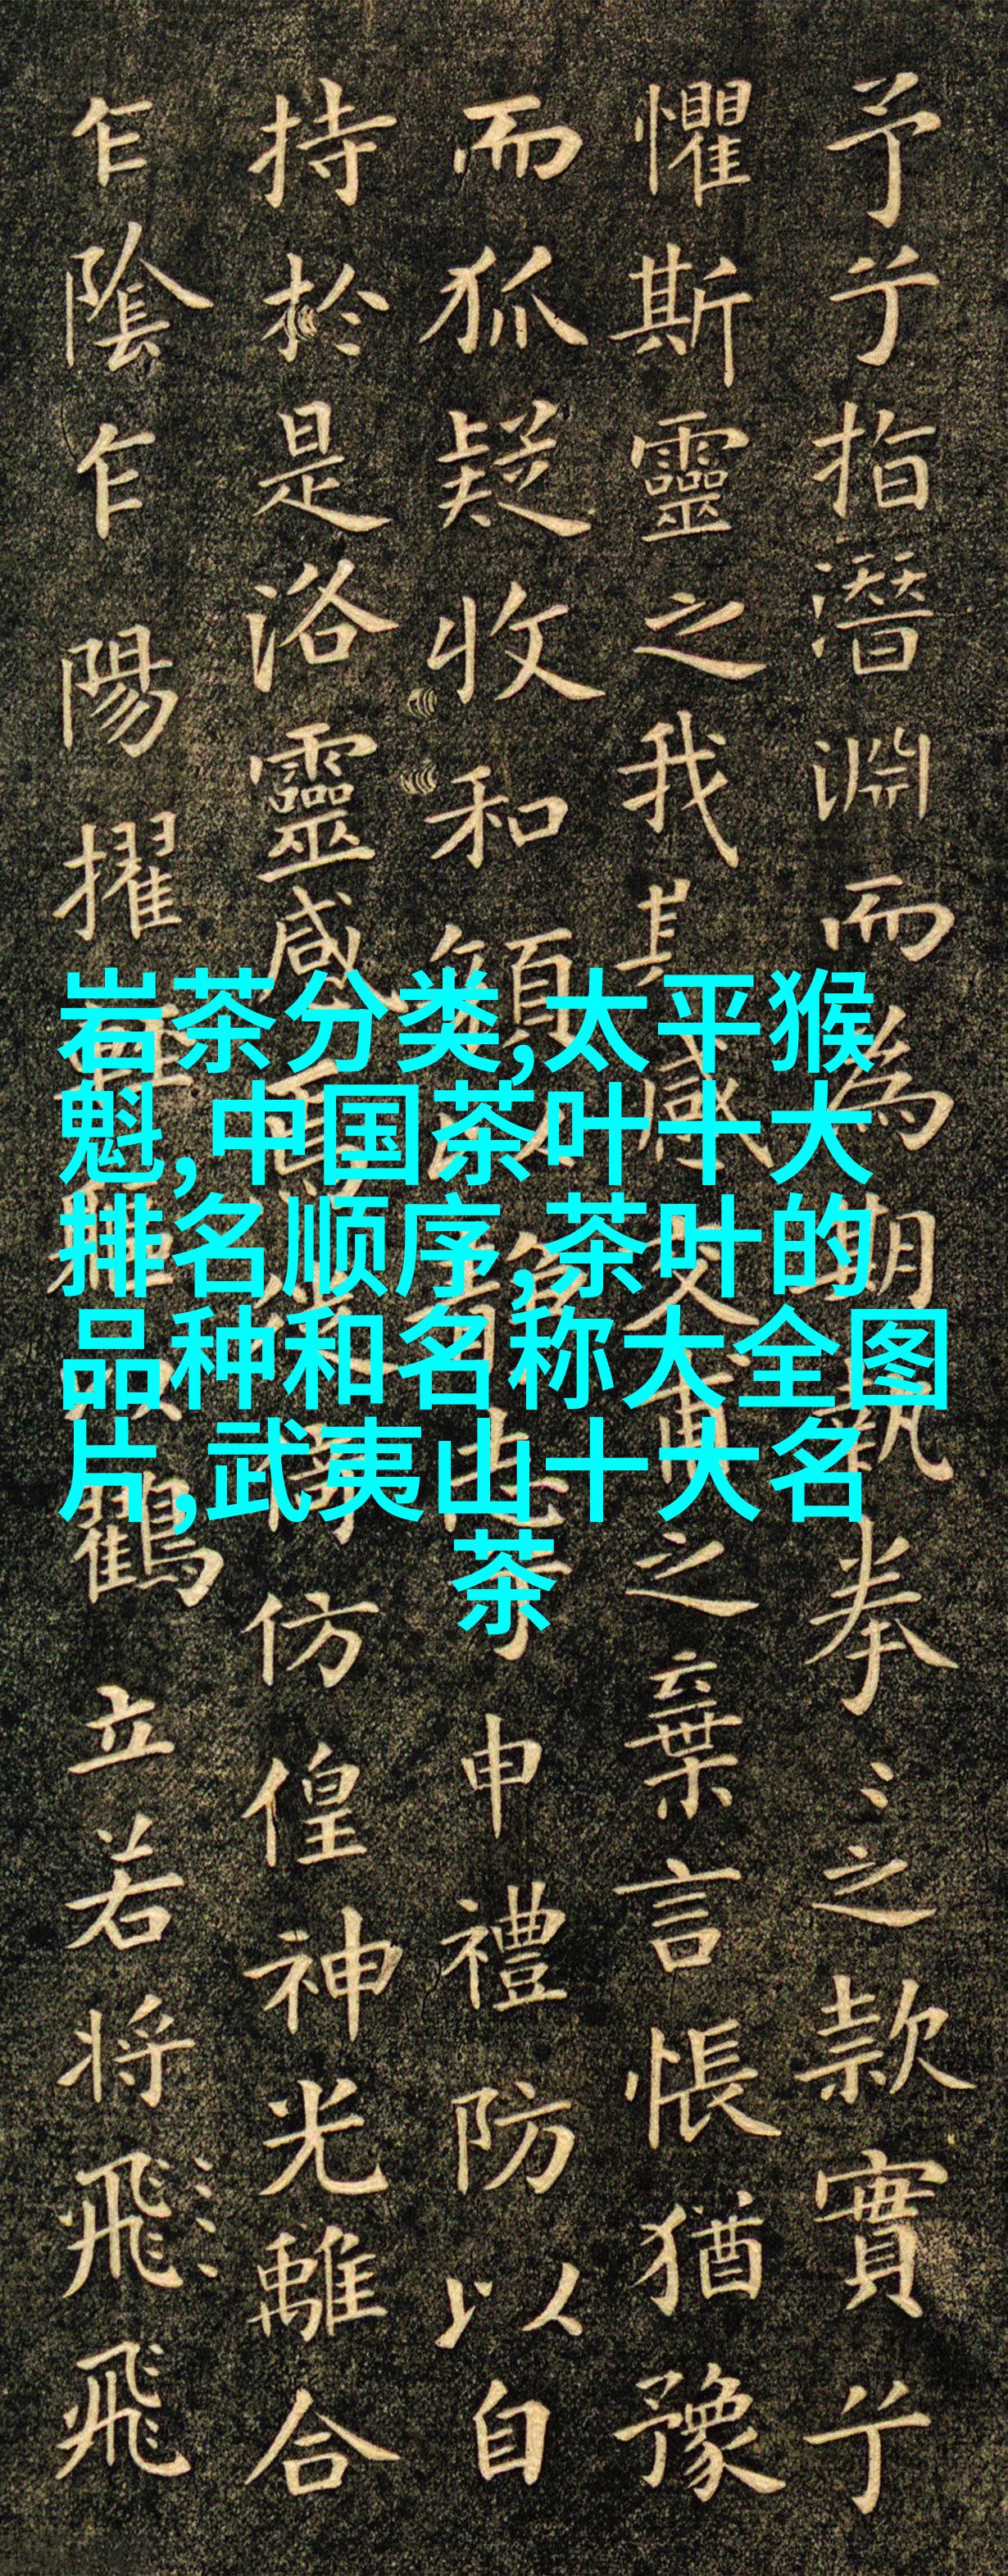 予兮指潛淵而為期執拳〻之款實兮
懼斯靈之我其感交甫之棄言悵猶豫
而狐疑收和顏申禮防以自
持於是洛靈感仿偟神光離合
乍陰乍陽擢鶴立若将飛飛
岩茶分类,太平猴
魁,中国茶叶十大
排名顺序,茶叶的
品种和名称大全图
片,武夷山十大名
茶